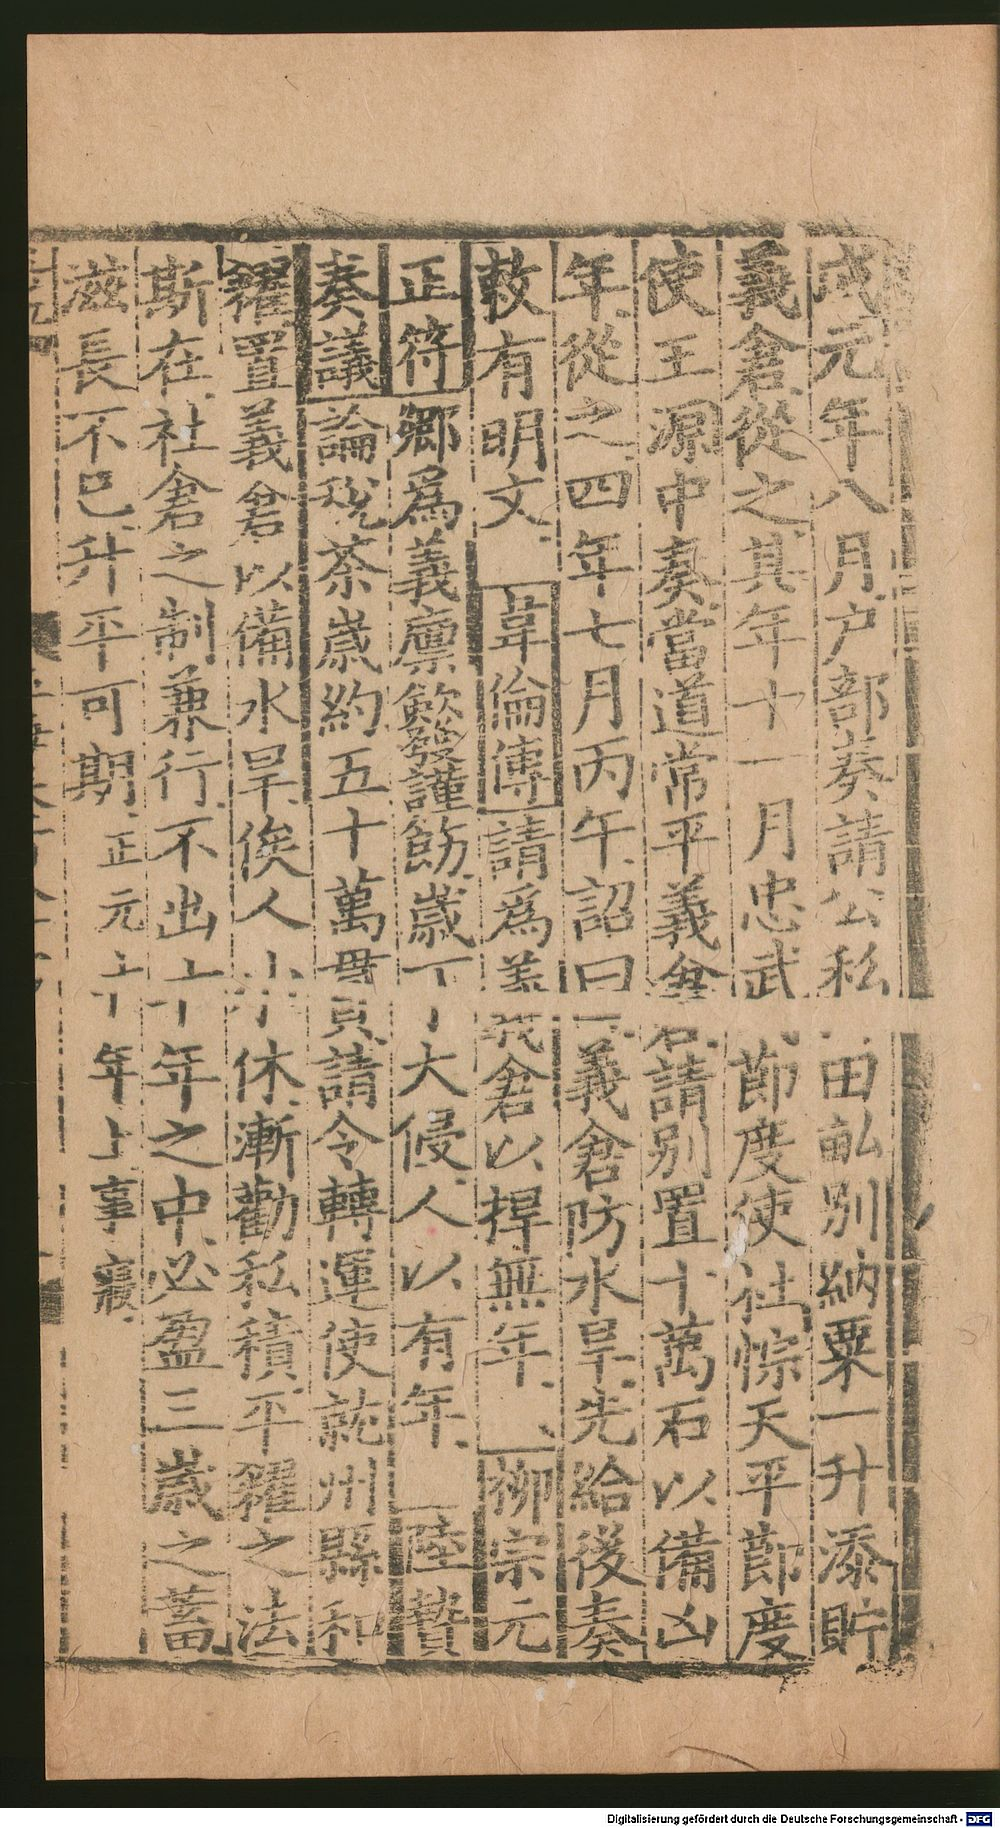 成元年八月户部奏請公私田畆别納粟一升添貯
義倉從之其年十一月忠武節度使杜悰天平節度
使王源中奏當道常平義倉請别置十萬石以備凶
年從之四年七月丙午詔曰義倉防水旱先給後奏
敕有明文 韋倫傳請爲義倉以捍無年 柳宗元
正符鄉爲義廪斂發謹飭歲丁大侵人以有年 陸贄
奏議論税茶歲約五十萬貫請令轉運使就州縣和
糴置義倉以備水旱俟人小休漸勸私積平糴之法
斯在社倉之制兼行不出十年之中必盈三歲之蓄
滋長不已升平可期正元十年上事寢
Digitalisierung gefördert durch die Deutsche Forschungsgemeinschaft - DFG